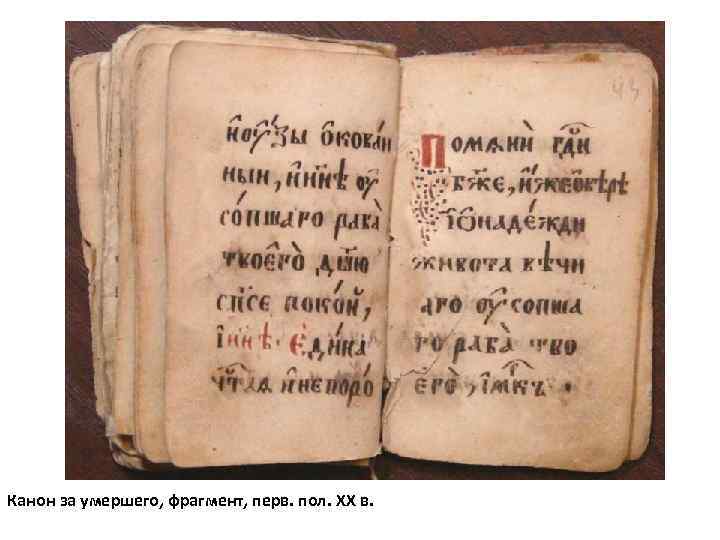 и҆оу҆́зы ѻ҆кова́н
ныи, и҆ нн҃ѣ оу҆
со́пшаго раба̀
твоего̀ дш҃ю
сп҃се поко́й,
і҆ нн҃ѣ. є҆ди́на
чт҃аѧ и҆ непоро́
43
Помѧнѝ гдⷭ҇и
бж҃е, и҆́же во вѣ́рѣ
і҆ ѡ҆ наде́жди
живота вѣчн
аго оу҆сопша
го раба̀ тво
его̀, і҆мк҃ъ.
Канон за умершего, фрагмент, перв. пол. XX в.